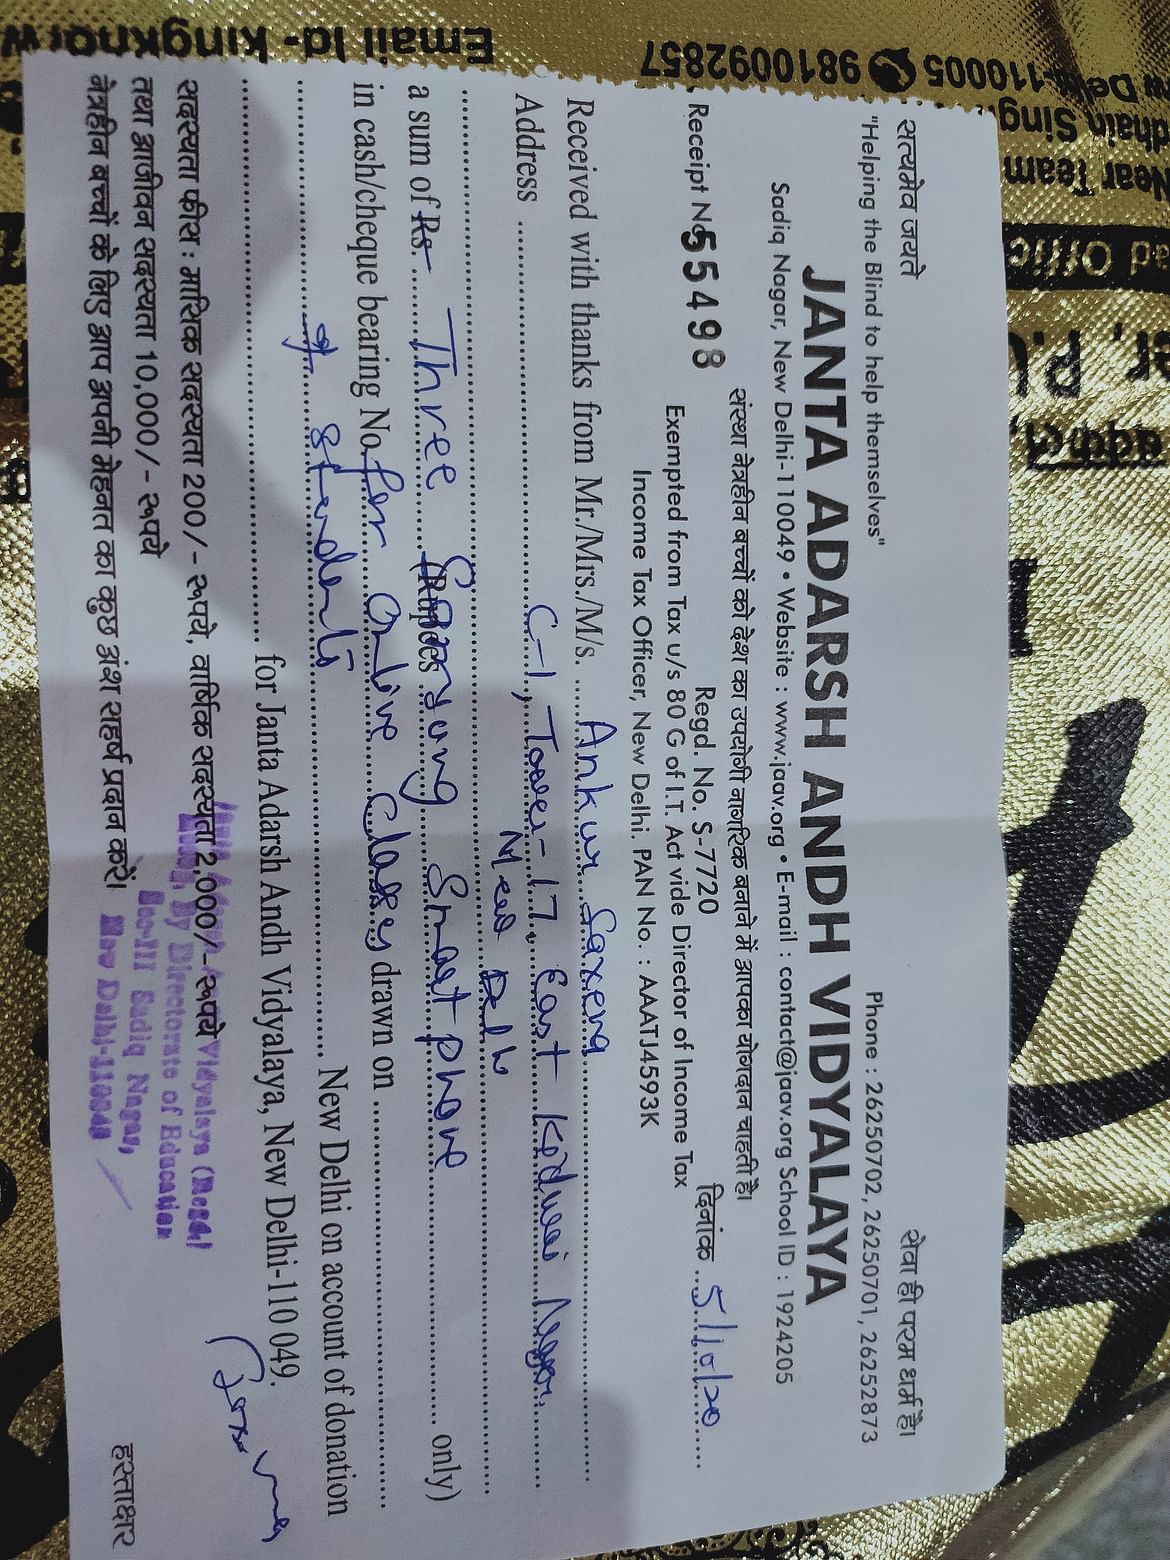 सत्यमेव जयते
सेवा ही परम धर्म है।
"Helping the Blind to help themselves"
Phone : 26250702, 26250701, 26252873
JANTA ADARSH ANDH VIDYALAYA
Sadiq Nagar, New Delhi-110049 • Website : www.jaav.org • E-mail : contact@jaav.org School ID : 1924205
संस्था नेत्रहीन बच्चों को देश का उपयोगी नागरिक बनाने में आपका योगदान चाहती है।
Regd. No. S-7720
Receipt No 55498
दिनांक 5/10/20
Exempted from Tax u/s 80 G of I.T. Act vide Director of Income Tax
Income Tax Officer, New Delhi. PAN No. : AAATJ4593K
Received with thanks from Mr./Mrs./M/s. Ankur Saxena
Address C-1, Tower-17, East Kidwai Nagar,
New Delhi
a sum of Rs Three (Rupees Samsung Smart phone only)
in cash/cheque bearing No. for online Classes drawn on
of students New Delhi on account of donation
for Janta Adarsh Andh Vidyalaya, New Delhi-110 049.
सदस्यता फीस : मासिक सदस्यता 200/- रूपये, वार्षिक सदस्यता 2,000/- रूपये
तथा आजीवन सदस्यता 10,000/- रूपये
नेत्रहीन बच्चों के लिए आप अपनी मेहनत का कुछ अंश सहर्ष प्रदान करें।
हस्ताक्षर
Vidyalaya (Regd)
By Directorate of Education
Sadiq Nagar,
New Delhi-110049
Email Id- kingknorw
9810092857
110005
Near Team